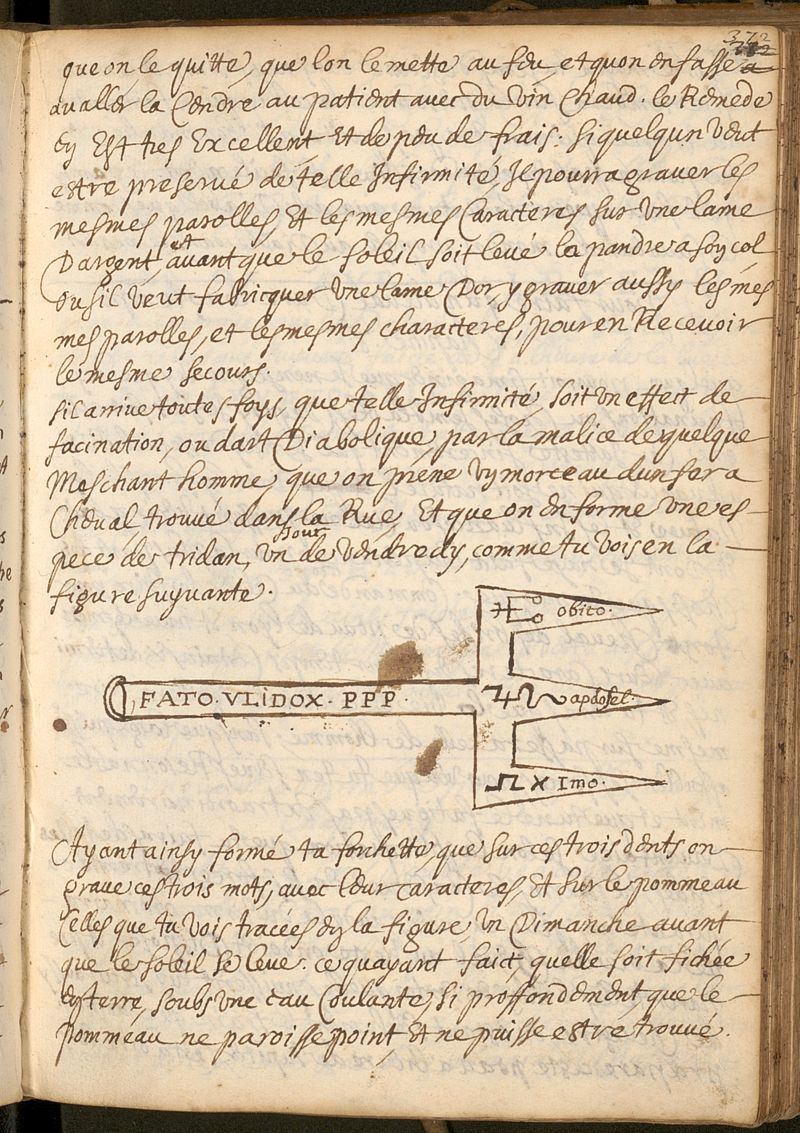 372
que on le quitte, que lon le mette au feu, et quon en fasse a
avaller la Cendre au patient avec du vin Chaud. le Remede
ey Est tres Excellent, Et de peu de frais: si quelqun veut
estre preservé de telle Infirmité, Il pourra graver les
mesmes parolles, Et les mesmes Caracteres sur une lame
Dargent, et avant que le soleil soit levé la pandre a soy col
ou sil veut fabricquer une lame Dor, y graver aussy les mes
mes parolles, et les mesmes characteres, pour en Recevoir
le mesme secours.
sil arrive toutes foys, que telle Infirmité, soit un effect de
facination, ou dart Diabolique, par la malice de quelque
Meschant homme, que on préne uy morceau dun fer a
Cheval, trouvé dans la Rue, Et que on en forme une es-
pece de tridan, un jour de vendredy, comme tu vois en la
figure suyvante.
obito.
FATO. VLIDOX. PPP.
apdosel.
Imo.
Ayant ainsy formé ta forchette, que sur ces trois dents on
grave ces trois mots, avec leur caracteres, Et sur le pommeau
Celles que tu vois tracées ey la figure, un Dimanche avant
que le soleil se leve. ce quayant faict, quelle soit fichée
ey terre, soubs une eau Coulante, si proffondement, que le
pommeau ne paroisse point, Et ne puisse estre trouvé.